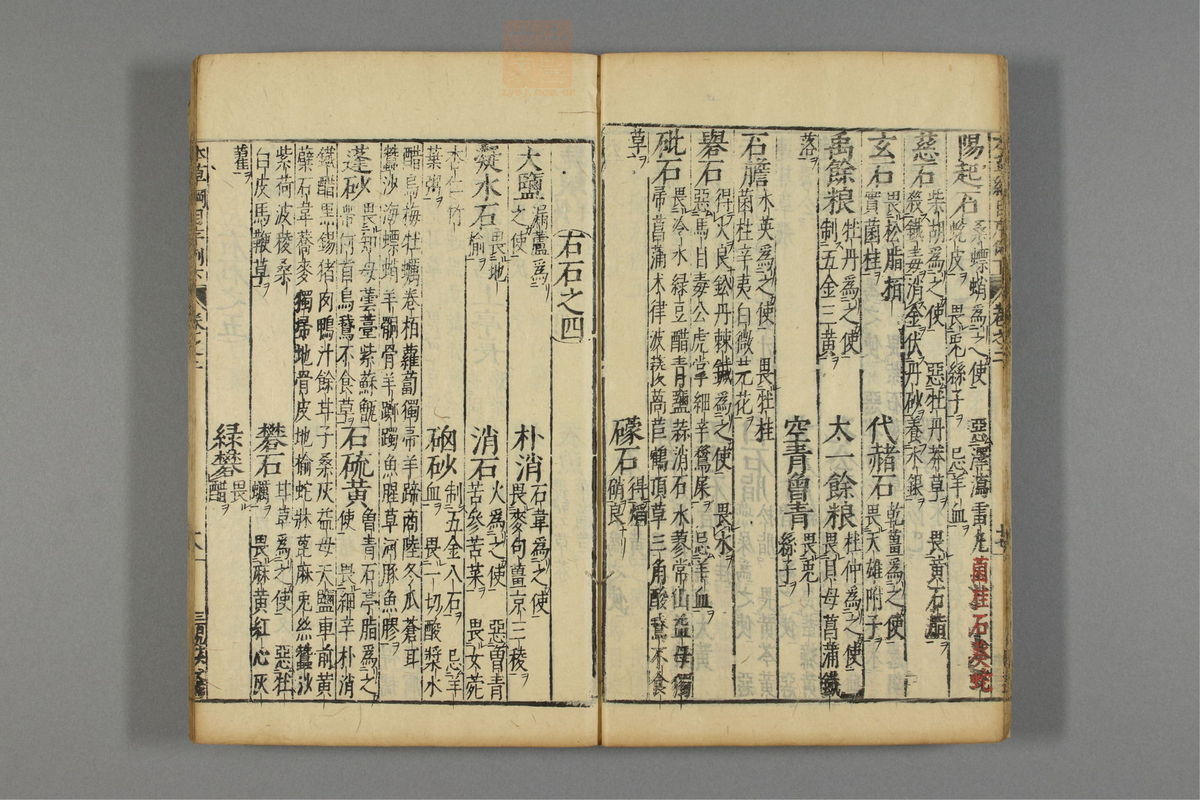 陽起石 桑螵蛸爲之使 惡澤瀉雷丸菌桂石葵蛇
蛇皮 畏兎絲子 忌羊血
慈石 柴胡爲之使 惡牡丹莽草 畏黃石脂
殺鐵毒消金伏丹砂養水銀
玄石 畏松脂栢實菌桂
代赭石 乾薑爲之使
畏天雄附子
禹餘粮 牡丹爲之使
制五金三黃
太一餘粮 杜仲爲之使
畏貝母菖蒲鐵
落
空青曾青 畏兎絲子
石膽 水英爲之使 畏牡桂
菌桂辛夷白微芫花
礜石 得火良鉛丹棘鍼爲之使 畏水
惡馬目毒公虎掌細辛鶩屎 忌羊血
砒石 畏冷水綠豆醋青鹽蒜消石水蓼常山益母獨
帚菖蒲木律菠薐萵苣鶴頂草三角酸鵞不食
草
礞石 得焰硝良
石石之四
大鹽 漏蘆爲之使
朴消 石韋爲之使
畏麥句薑京三稜
凝水石 畏地榆
消石 火爲之使 惡曾青
苦參苦菜 畏女菀
杏仁竹葉粥
硇砂 制五金八石 忌羊血
畏一切酸漿水
醋烏梅牡蠣卷栢蘿蔔獨帚羊蹄商陸冬瓜蒼耳
蠶沙海螵蛸羊䯊骨羊躑躅魚腥草河豚魚膠
蓬砂 畏知母蕓薹紫蘇甑帶何首烏鵞不食草
石硫黃 曾青石亭脂爲之使
畏細辛朴消
鐵醋黑錫猪肉鴨汁餘甘子桑灰益母天鹽車前黃
蘗石韋蕎麥獨帚地骨皮地榆蛇牀蓖麻兎絲蠶沙
紫荷菠稜桑白皮馬鞭草
礬石 甘草爲之使 惡牡蠣
畏麻黃紅心灰
藋
緑礬 畏醋